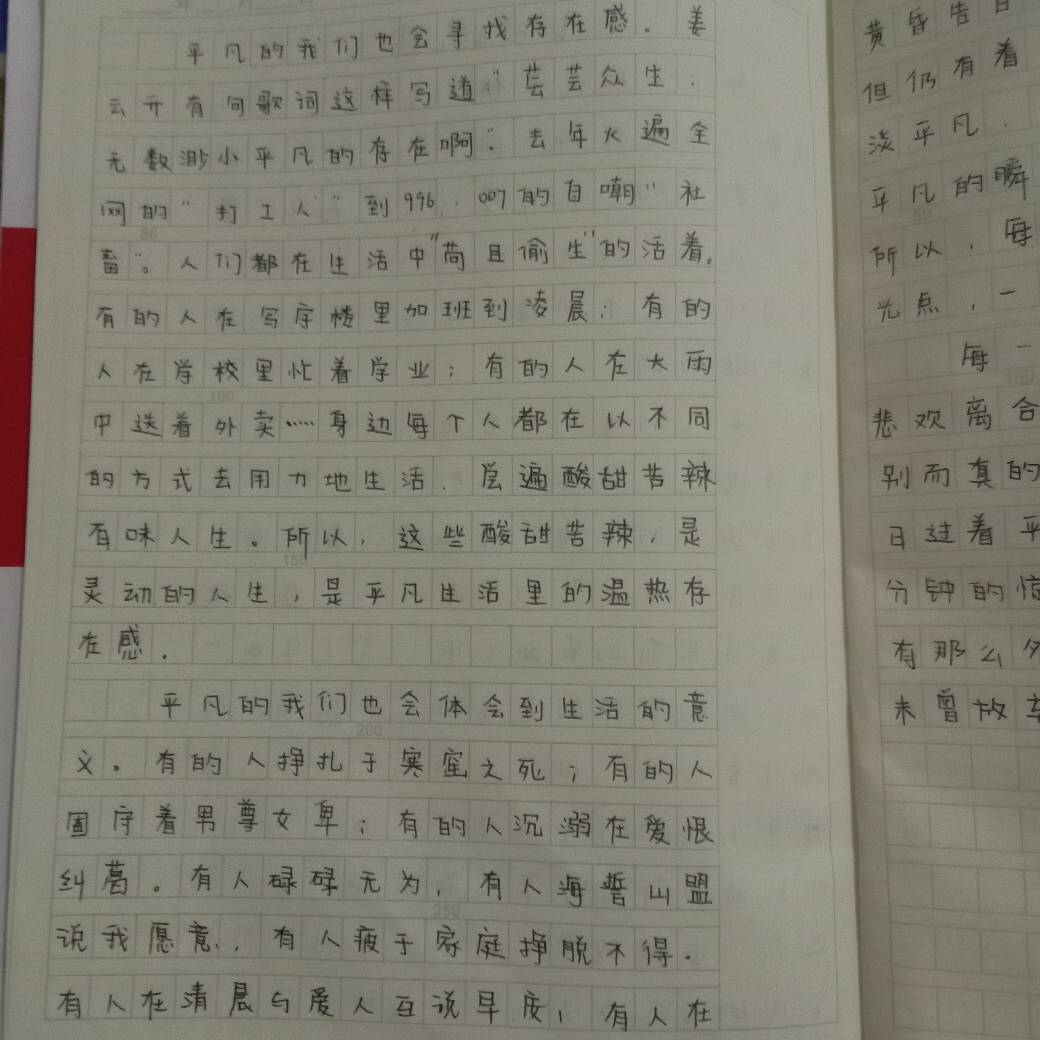 平凡的我们也会寻找存在感。姜
云升有句歌词这样写道"芸芸众生.
无数渺小平凡的存在啊".去年火遍全
网的"打工人"到996.007的自嘲"社
畜"。人们都在生活中"苟且偷生"的活着。
有的人在写字楼里加班到凌晨;有的
人在学校里忙着学业;有的人在大雨
中送着外卖……身边每个人都在以不同
的方式去用力地生活.尝遍酸甜苦辣
百味人生。所以,这些酸甜苦辣,是
灵动的人生,是平凡生活里的温热存
在感.
平凡的我们也会体会到生活的意
义。有的人挣扎于寒窑之死;有的人
固守着男尊女卑;有的人沉溺在爱恨
纠葛。有人碌碌无为,有人海誓山盟
说我愿意,有人疲于家庭挣脱不得.
有人在清晨与爱人互说早安,有人在
黄昏告
但仍有着
淡平凡.
平凡的瞬
所以,每
光点,一
每一
悲欢离合
别而真的
日过着平
分钟的惊
有那么多
未曾放弃
50
100
150
200
250
50
100